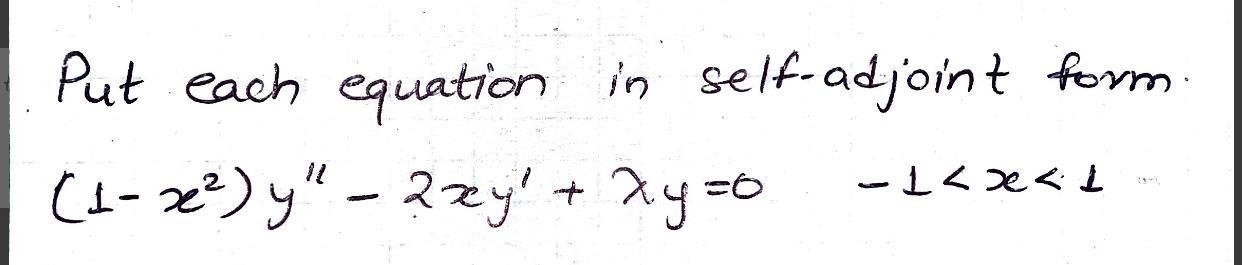 Put each equation in self-adjoint form.
(1-x²)y" - 2xy' + λy=0 -1<x<1